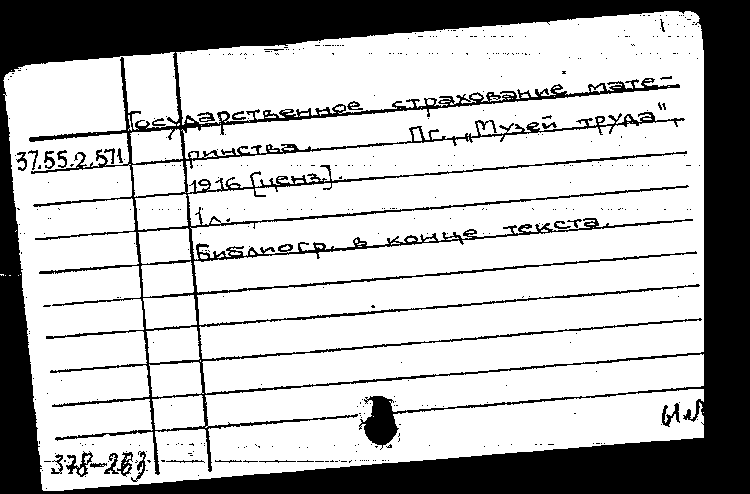 Государственное страхование мате-
37.55.2.571 ринства. Пг., „Музей труда",
1916 [ценз].
1 л.
Библиогр. в конце текста.
378-263